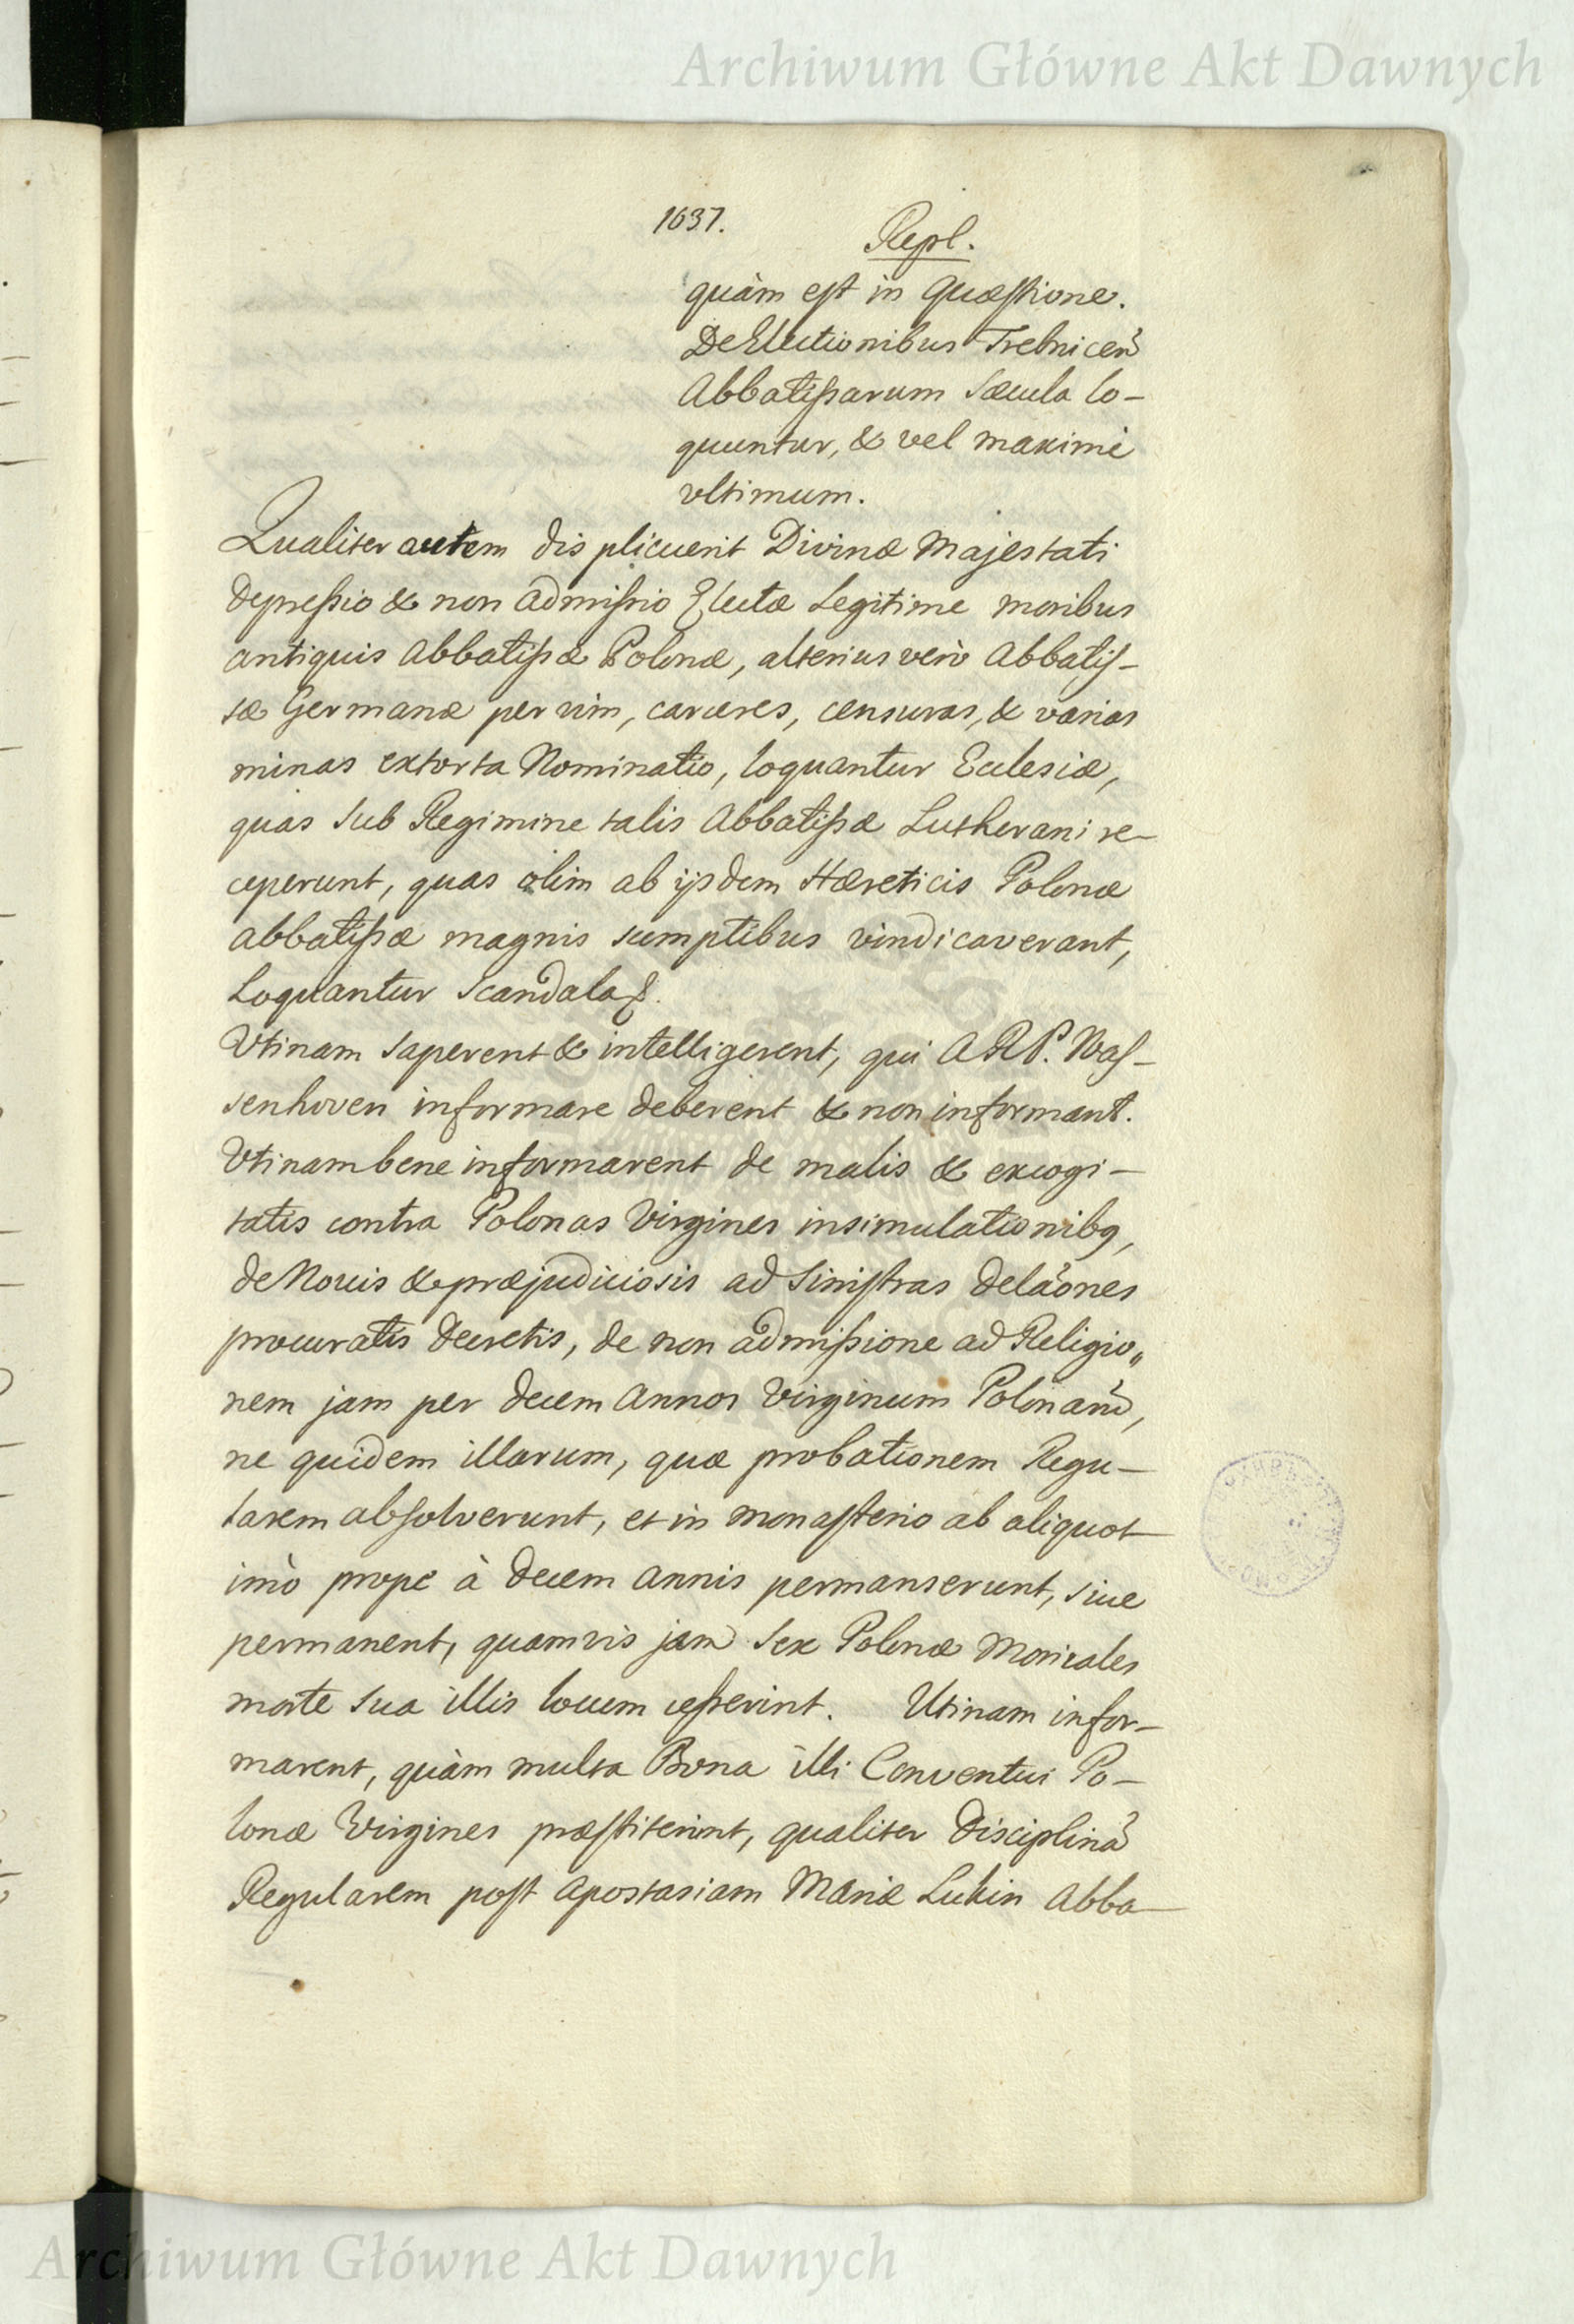 Archiwum Główne Akt Dawnych
1637.
Repl.
quàm est in Quæstione.
De Electionibus Trebnicen̄
Abbatissarum sæcula lo-
quuntur, & vel maximè
ultimum.
Qualiter autem displicuerit Divinæ Majestati
depressio & non admissio Electæ Legitime moribus
antiquis Abbatissæ Polonæ, alterius verò Abbatis-
sæ Germanæ per vim, carceres, censuras, & varias
minas extorta Nominatio, loquantur Ecclesiæ,
quas sub Regimine talis Abbatissæ Lutherani re-
ceperunt, quas olim ab ijsdem Hæreticis Polonæ
abbatissæ magnis sumptibus vindicaverant,
Loquantur Scandala &.
Vtinam saperent & intelligerent, qui A R P. Was-
senhoven informare deberent & non informant.
Vtinam bene informarent de malis & excogi-
tatis contra Polonas Virgines insimulationibq,
de Novis & præjudiciosis ad sinistras delāones
procuratis decretis, de non admissione ad Religio„
nem jam per decem Annos Virginum Polonarū,
ne quidem illarum, quæ probationem Regu-
larem absolverunt, et in monasterio ab aliquot
imò prope à decem annis permanserunt, sive
permanent, quamvis jam sex Polonæ Moniales
morte sua illis locum cesserint. Utinam infor-
marent, quàm multa Bona illi Conventui Po-
lonæ Virgines præstiterint, qualiter disciplinā
Regularem post apostasiam Mariæ Lukin Abba-
Archiwum Główne Akt Dawnych